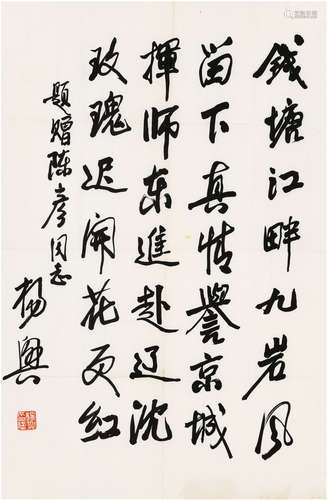 錢塘江畔九岩风
笛下真情誉京城
揮师东進赴辽沈
玫瑰迟開花更红
题赠陈彦同志
杨興